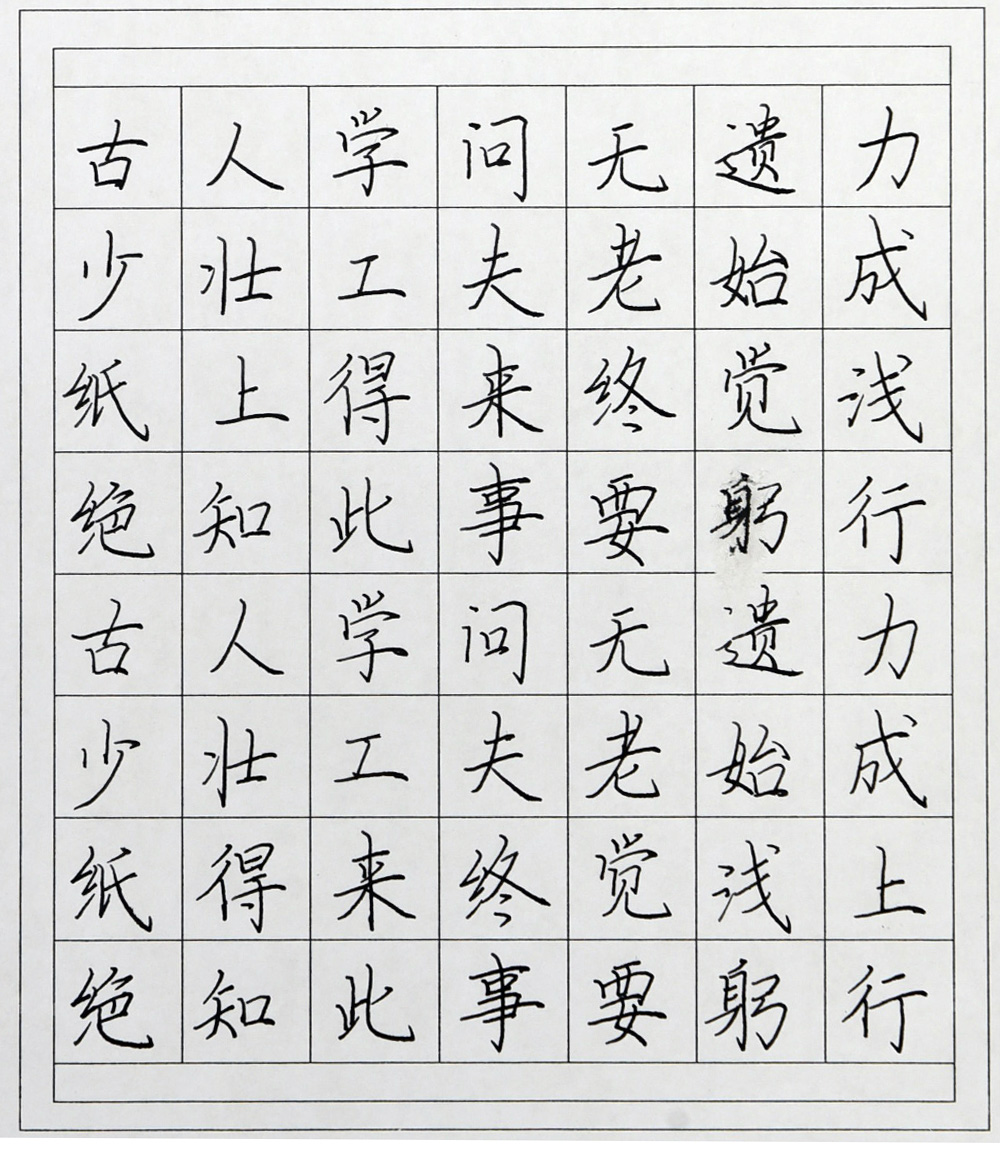 古人学问无遗力
少壮工夫老始成
纸上得来终觉浅
绝知此事要躬行
古人学问无遗力
少壮工夫老始成
纸得来终觉浅上
绝知此事要躬行